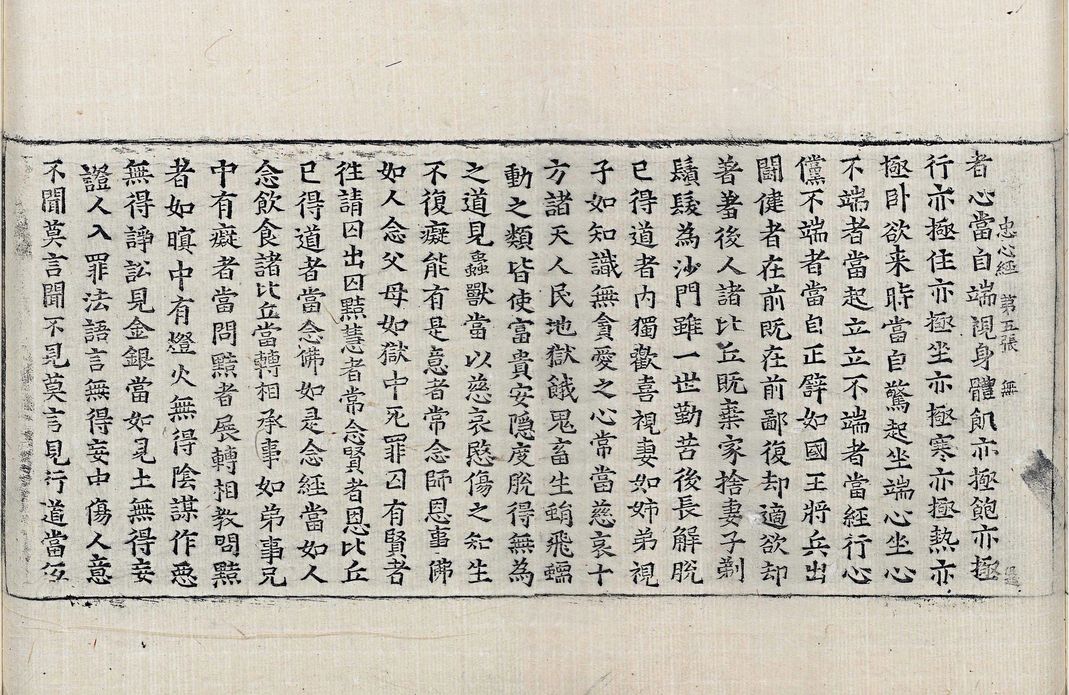 忠心經 第五張 無
者心當自端視身體飢亦極飽亦極
行亦極住亦極坐亦極寒亦極熱亦
極卧欲来時當自驚起坐端心坐心
不端者當起立立不端者當經行心
儻不端者當自正譬如國王將兵出
鬪健者在前旣在前鄙復却適欲却
著羞後人諸比丘旣棄家捨妻子剃
鬚髮為沙門雖一世勤苦後長解脫
已得道者內獨歡喜視妻如姊弟視
子如知識無貪愛之心常當慈哀十
方諸天人民地獄餓鬼畜生蜎飛蠕
動之類皆使富貴安隱度脫得無為
之道見蟲獸當以慈哀愍傷之知生
不復癡能有是意者常念師恩事佛
如人念父母如獄中死罪囚有賢者
往請囚出囚黠慧者常念賢者恩比丘
已得道者當念佛如是念經當如人
念飲食諸比丘當轉相承事如弟事兄
中有癡者當問黠者展轉相教問黠
者如暝中有燈火無得陰謀作惡
無得諍訟見金銀當如見土無得妄
證人入罪法語言無得妄中傷人意
不聞莫言聞不見莫言見行道當低